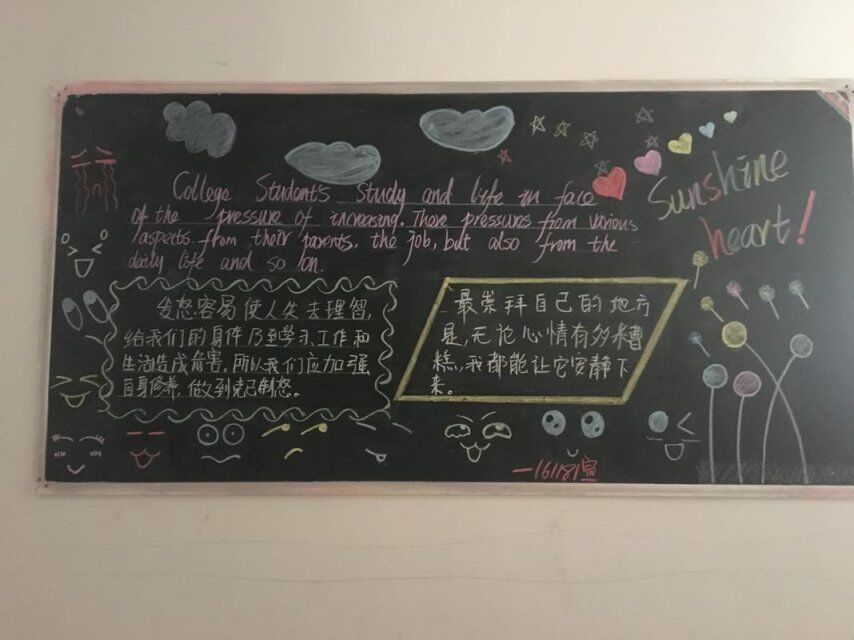 College Student's study and life in face
of the pressure of increasing. There pressures from various
aspects. from their parents, the job, but also from the
daily life and so on.
Sunshine
heart!
发怒容易使人失去理智,
给我们的身体乃至学习、工作和
生活造成危害。所以我们应加强
自身修养,做到克己制怒。
最崇拜自己的地方
是,无论心情有多糟
糕,我都能让它安静下
来。
—16181宣